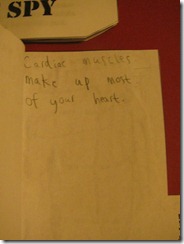 SPY
Cardiac muscles
make up most
of your heart.